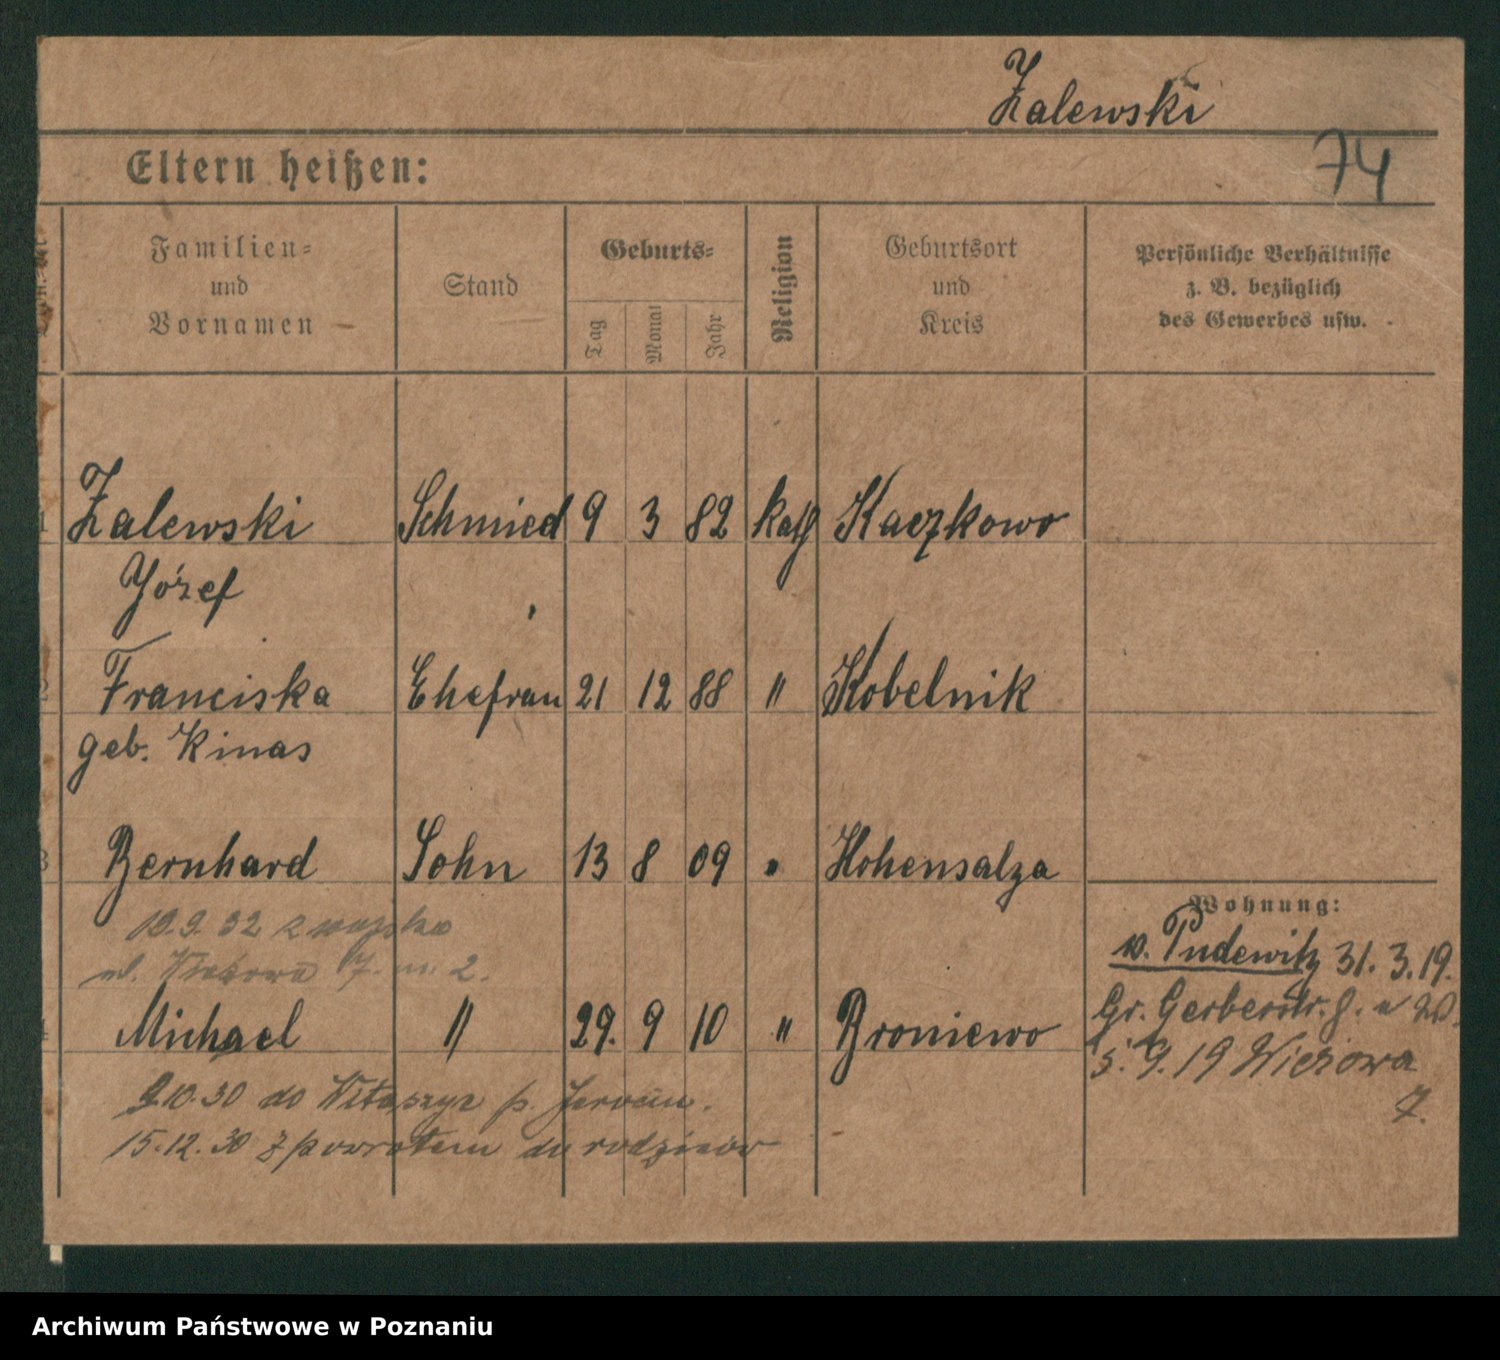 Zalewski
74
Eltern heißen:
Familien-
und
Vornamen
Stand
Geburts-
Tag
Monat
Jahr
Religion
Geburtsort
und
Kreis
Persönliche Verhältnisse
z. B. bezüglich
des Gewerbes usw.
1 Zalewski Schmied 9 3 82 kath Kaczkowo
Józef
2 Franciska Ehefrau 21 12 88 " Kobelnik
geb. Kinas
3 Bernhard Sohn 13 8 09 " Hohensalza
z wojska
ul. 7. m. 2.
4 Michael " 29. 9 10 " Broniewo
9.10.30 do Witaszyc p. Jarocin.
15.12.30 z powrotem do rodziców
Wohnung:
v. Pudewitz 31. 3. 19.
Gr. Gerberstr. 8.
5. 9. 19 Wieżowa
7.
Archiwum Państwowe w Poznaniu